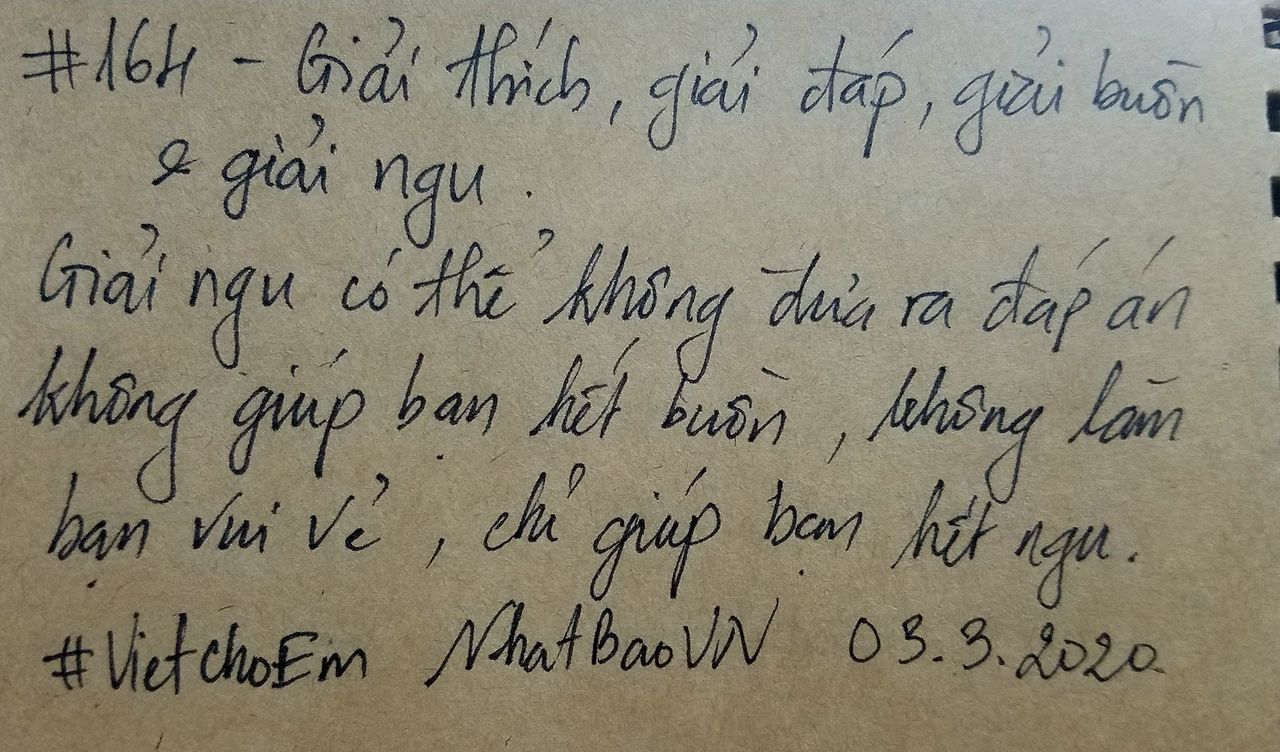 #164 - Giải thích, giải đáp, giải buồn
& giải ngu.
Giải ngu có thể không đưa ra đáp án
không giúp bạn hết buồn, không làm
bạn vui vẻ, chỉ giúp bạn hết ngu.
#VietchoEm NhatBaoVN 03.3.2020